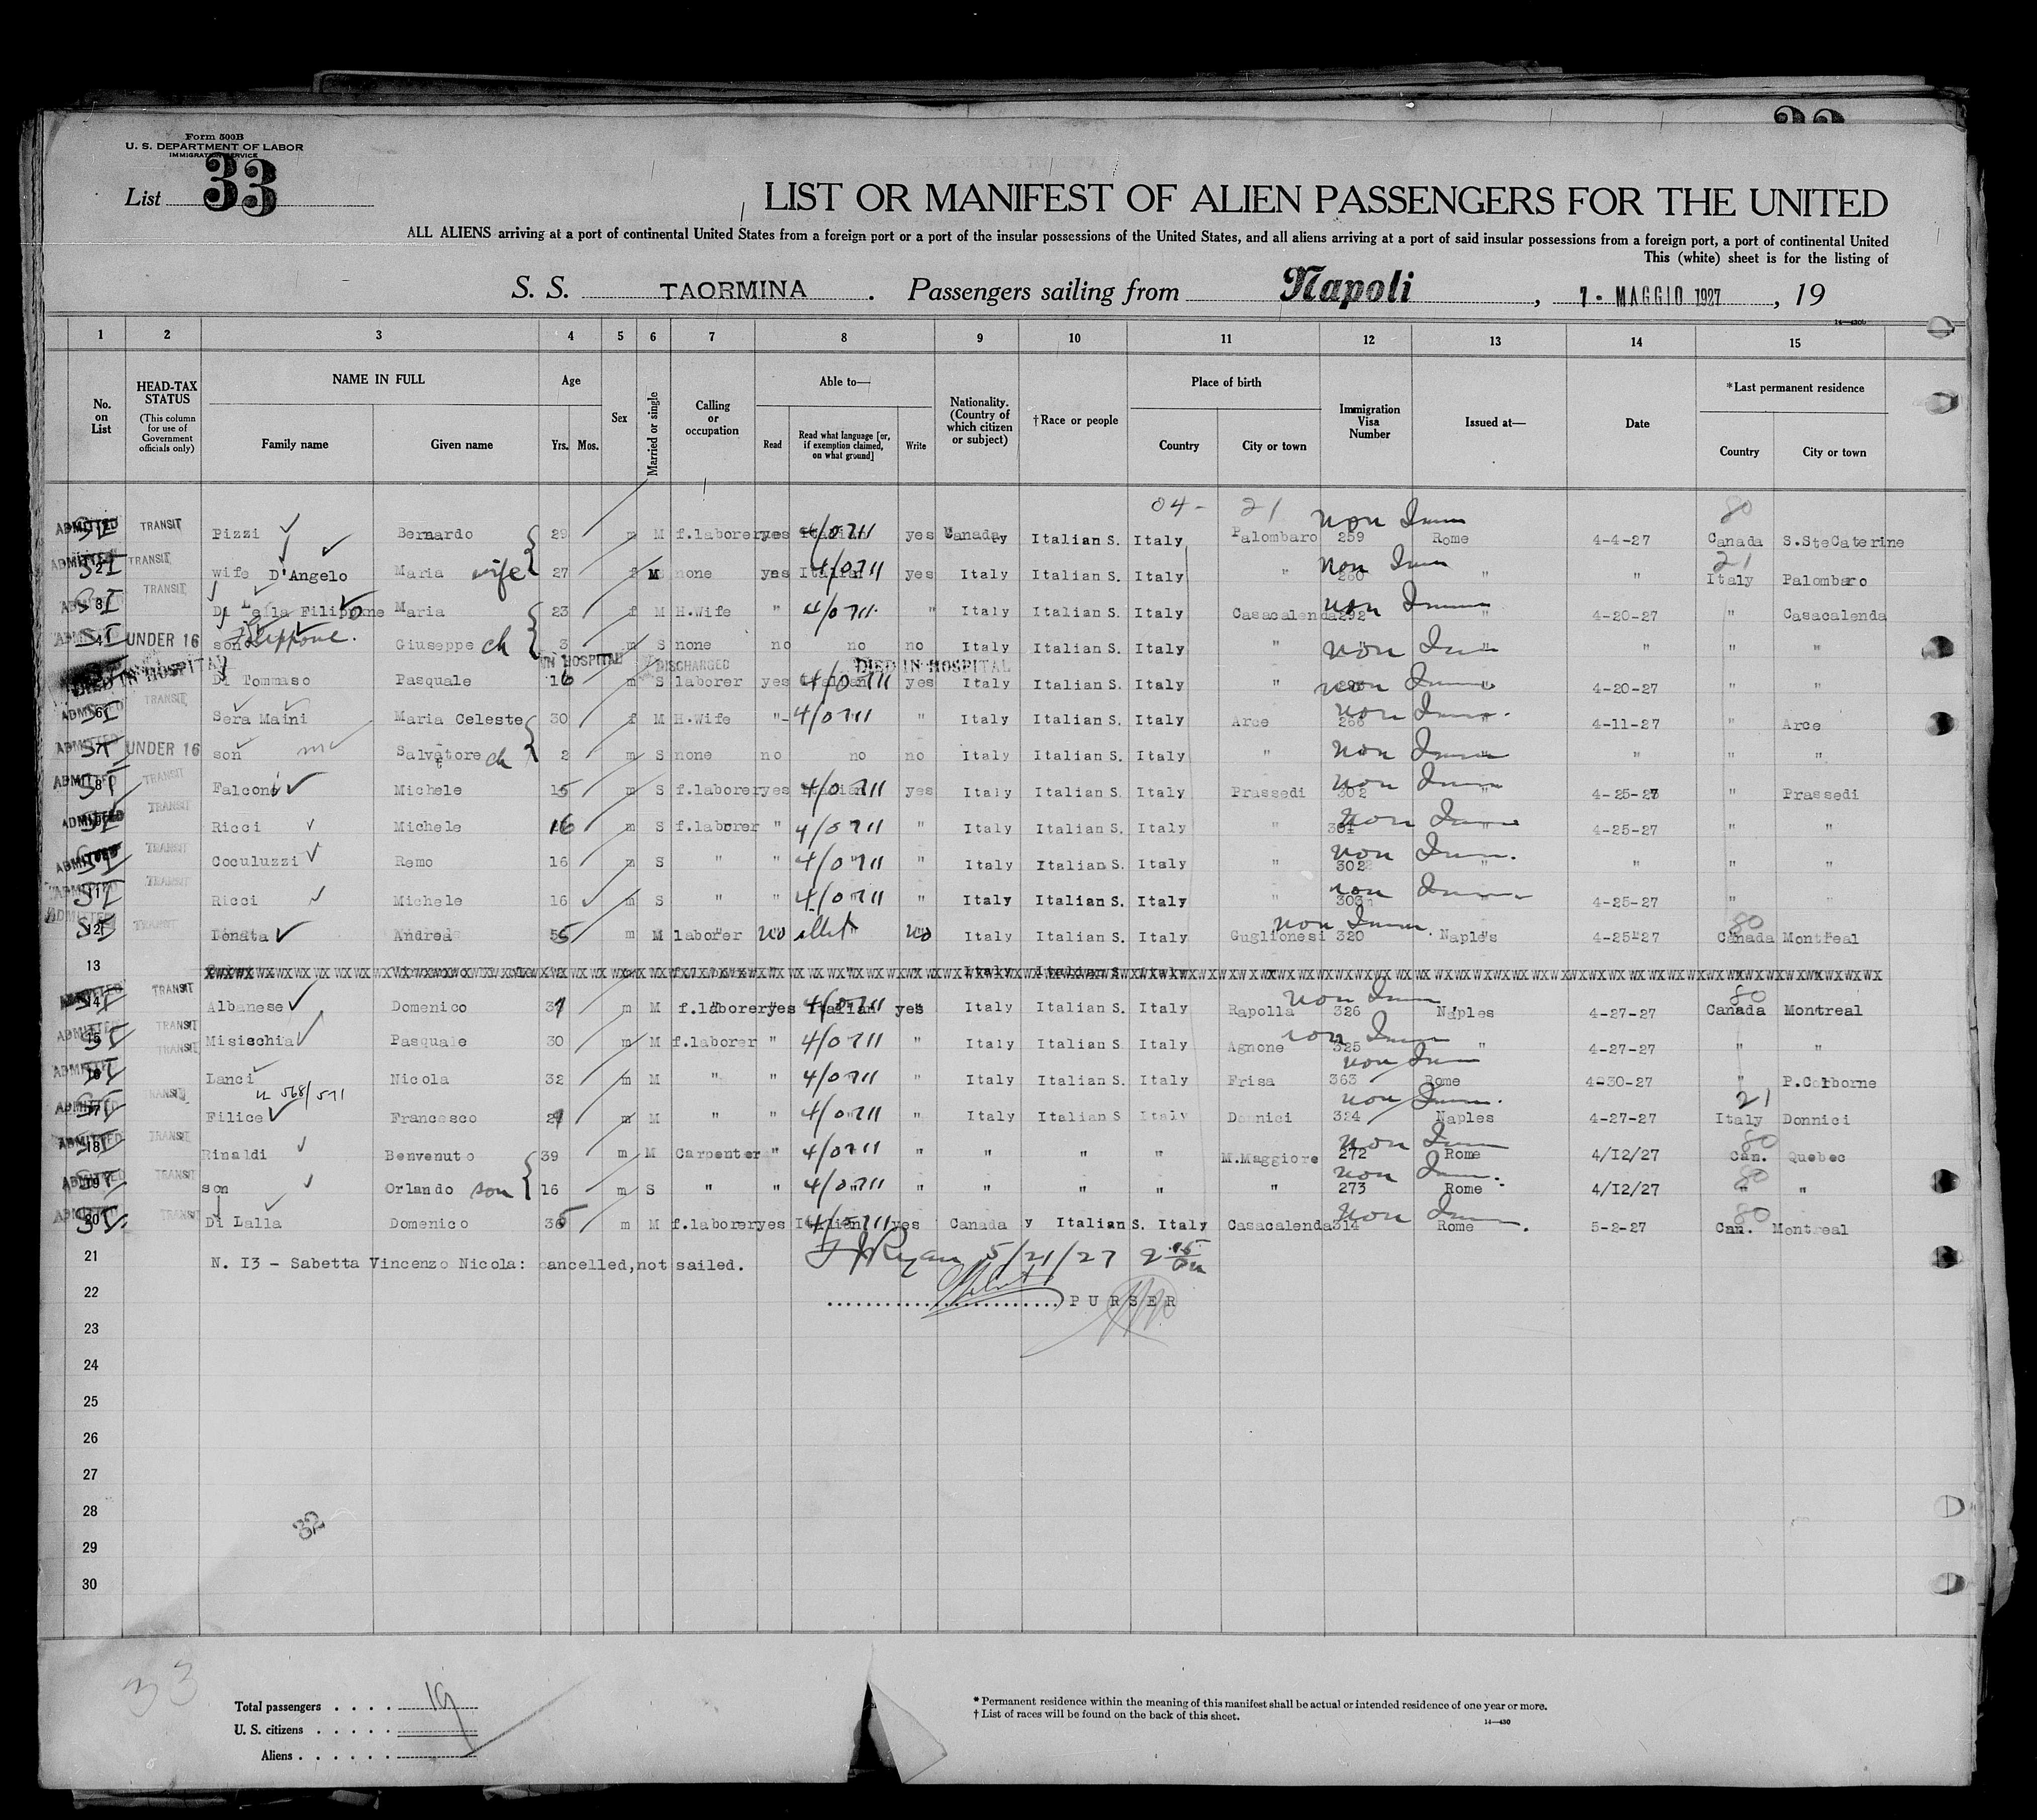 Form 500B
U. S. DEPARTMENT OF LABOR
IMMIGRATION SERVICE
List 33
LIST OR MANIFEST OF ALIEN PASSENGERS FOR THE UNITED
ALL ALIENS arriving at a port of continental United States from a foreign port or a port of the insular possessions of the United States, and all aliens arriving at a port of said insular possessions from a foreign port, a port of continental United
This (white) sheet is for the listing of
S. S. TAORMINA. Passengers sailing from Napoli, 7 - MAGGIO 1927, 19
1 2 3 4 5 6 7 8 9 10 11 12 13 14 15
No. on List HEAD-TAX STATUS (This column for use of Government officials only) NAME IN FULL Family name Given name Age Yrs. Mos. Sex Married or single Calling or occupation Able to— Read Read what language [or, if exemption claimed, on what ground] Write Nationality. (Country of which citizen or subject) †Race or people Place of birth Country City or town Immigration Visa Number Issued at— Date *Last permanent residence Country City or town
04- 21 80
ADMITTED TRANSIT Pizzi Bernardo 29 m M f.laborer yes 4/0711 yes Canada Italian S. Italy Palombaro non Imm 259 Rome 4-4-27 Canada S.SteCaterine
ADMITTED TRANSIT wife D'Angelo Maria wife 27 f M none yes Italian 4/0711 yes Italy Italian S. Italy " non Imm 260 " " 21 Italy Palombaro
TRANSIT Maria 23 f M H.Wife " 4/0711 " Italy Italian S. Italy Casacalenda non Imm 292 " 4-20-27 " Casacalenda
UNDER 16 son Filippone. Giuseppe ch 3 m S none no no no Italy Italian S. Italy " non Imm " " " "
DIED IN HOSPITAL IN HOSPITAL DISCHARGED DIED IN HOSPITAL
Di Tommaso Pasquale 16 m S laborer yes 4/0711 yes Italy Italian S. Italy " non Imm " 4-20-27 " "
6 TRANSIT Sera Maini Maria Celeste 30 f M H.Wife " 4/0711 " Italy Italian S. Italy Arce non Imm. 266 " 4-11-27 " Arce
UNDER 16 son Salvatore ch 2 m S none no no no Italy Italian S. Italy " non Imm " " " "
ADMITTED 8 TRANSIT Falconi Michele 15 m S f.laborer yes 4/0711 yes Italy Italian S. Italy Prassedi non Imm 302 " 4-25-27 " Prassedi
ADMITTED TRANSIT Ricci Michele 16 m S f.laborer " 4/0711 " Italy Italian S. Italy " non Imm 301 " 4-25-27 " "
ADMITTED TRANSIT Coculuzzi Remo 16 m S " " 4/0711 " Italy Italian S. Italy " non Imm. 302 " " " "
ADMITTED 11 TRANSIT Ricci Michele 16 m S " " 4/0711 " Italy Italian S. Italy " non Imm 303 " 4-25-27 " "
ADMITTED 12 TRANSIT Donata Andrea m M laborer no no Italy Italian S. Italy Guglionesi non Imm. 320 Naples 4-25-27 80 Canada Montreal
13
14 TRANSIT Albanese Domenico m M f.laborer yes Italian 4/0711 yes Italy Italian S. Italy Rapolla non Imm 326 Naples 4-27-27 80 Canada Montreal
ADMITTED 15 TRANSIT Misischia Pasquale 30 m M f.laborer " 4/0711 " Italy Italian S. Italy Agnone non Imm 325 " 4-27-27 " "
ADMITTED 16 TRANSIT Lanci Nicola 32 m M " " 4/0711 " Italy Italian S. Italy Frisa non Imm 363 Rome 4-30-27 " P.Colborne
568/511
ADMITTED TRANSIT Filice Francesco m M " " 4/0711 " Italy Italian S Italy Donnici non Imm. 324 Naples 4-27-27 21 Italy Donnici
ADMITTED 18 TRANSIT Rinaldi Benvenuto 39 m M Carpenter " 4/0711 " " " " M.Maggiore non Imm 272 Rome 4/12/27 80 Can. Quebec
ADMITTED 19 TRANSIT son Orlando son 16 m S " " 4/0711 " " " " " non Imm. 273 Rome 4/12/27 80 " "
ADMITTED 20 TRANSIT Di Lalla Domenico m M f.laborer yes Italian yes Canada Italian S. Italy Casacalenda non Imm. 314 Rome 5-2-27 80 Can. Montreal
21 N. 13 - Sabetta Vincenzo Nicola: cancelled, not sailed. Ryan 5/21/27
22 PURSER
23
24
25
26
27
28
29
30
32
33
Total passengers . . . . 19
U. S. citizens . . . . .
Aliens . . . . . .
* Permanent residence within the meaning of this manifest shall be actual or intended residence of one year or more.
† List of races will be found on the back of this sheet.
14—430